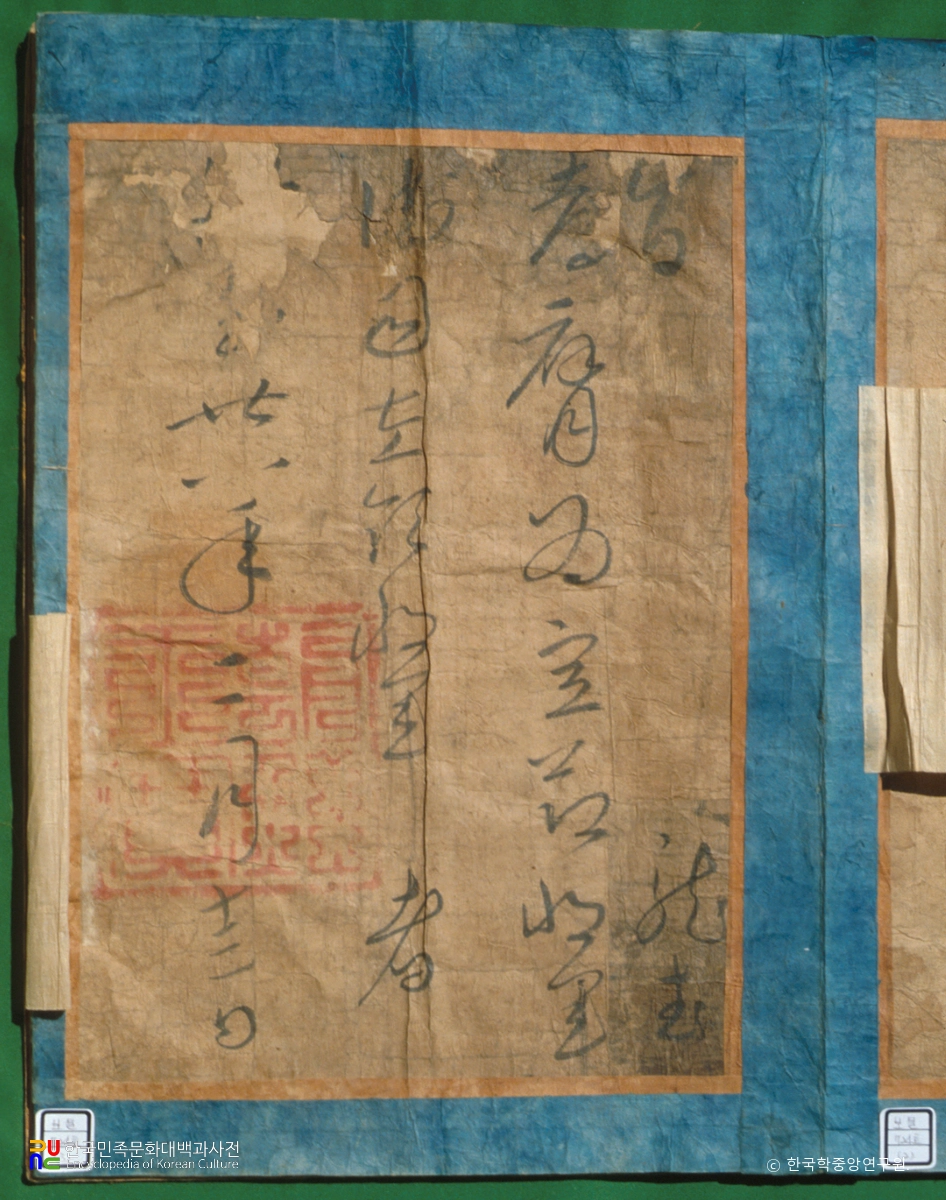 旨
都膺爲宣節將軍龍武
巡衛司左領將軍 者
洪武廿八年二月十二日
한국민족문화대백과사전
Encyclopedia of Korean Culture
© 한국학중앙연구원